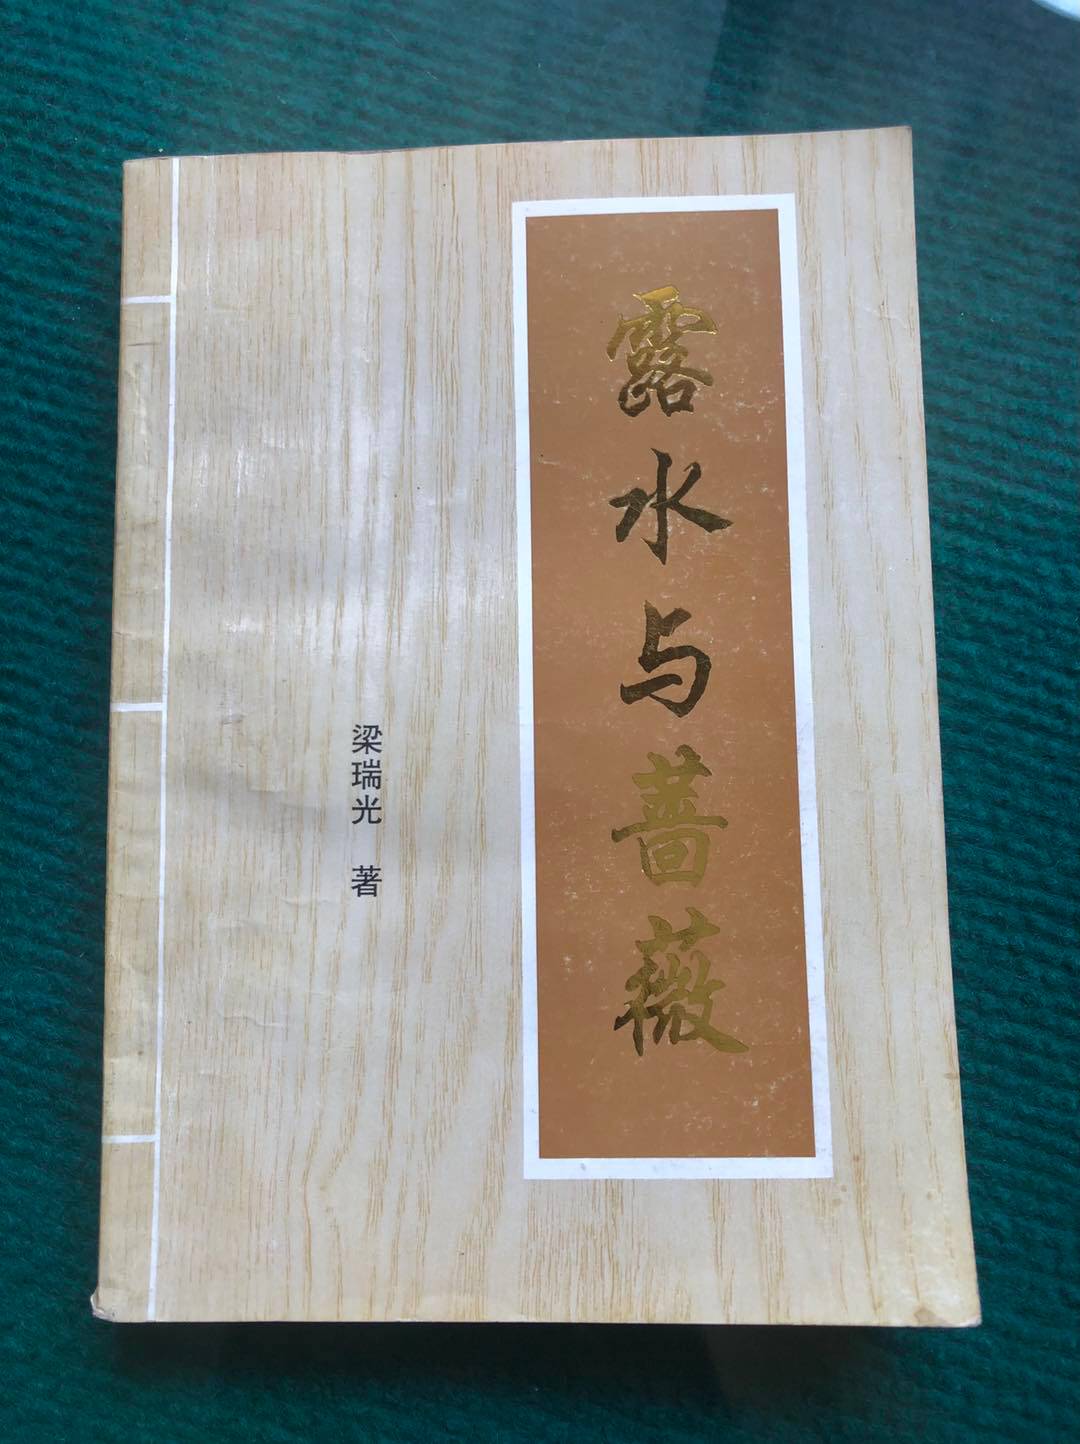 露水与蔷薇
梁瑞光 著